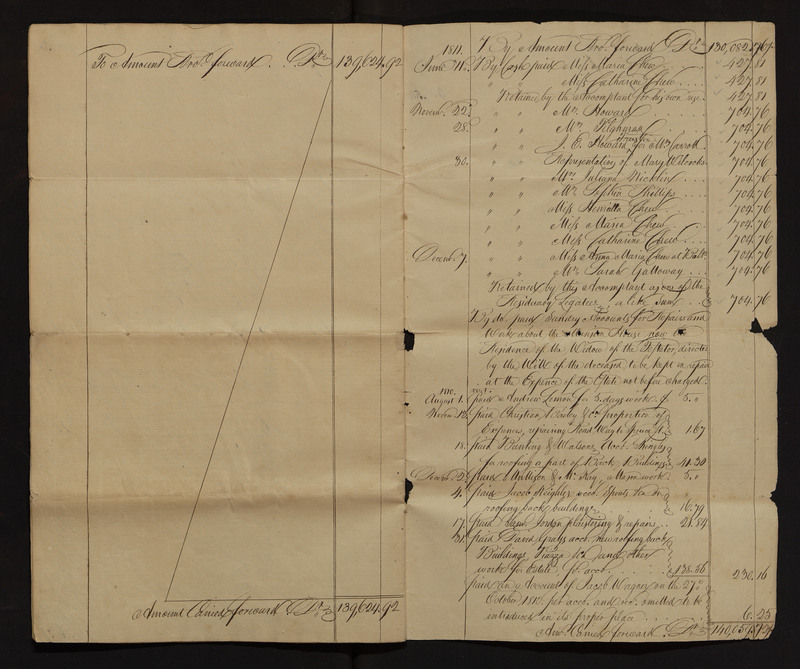 To Amount Bro.t forward. D.rs 139,624.92
Amount Carried forward D.rs 139,624.92
1811. By Amount Bro.t forward D.rs 130,082.
June 11. By Cash paid Miss Maria Chew 427.81
" Miss Catharine Chew 427.81
Retained by the accomptant for his own use 427.81
Novem.r 22. " " Mrs. Howard 704.76
28. " " Mrs. Tilghman 704.76
" " J. E. Howard for Mrs. Carroll 704.76
30. " " Representatives of Mary Wilcocks 704.76
" " Mrs. Juliana Nicklin 704.76
" " Mrs. Sophia Phillips 704.76
" " Miss Henrietta Chew 704.76
" " Miss Maria Chew 704.76
" " Miss Catharine Chew 704.76
Decem.r 7. " " Miss Anna Maria Chew at Balt. 704.76
" " Mrs. Sarah Galloway 704.76
Retained by this Accomptant as one of the
Residuary Legatees a like Sum 704.76
By do. paid Sundry Accounts for Repairs and
Work about the Mansion House now the
Residence of the Widow of the Testator, directed
by the Will of the deceased to be kept in repair
at the Expence of the Estate not before charged.
1810.
August 1. paid Andrew Lemon for 5 days work 5."
Novem. 12. paid Christian & Co. proportion of
Expences, repairing Road Way to Spruce St. 1.67
18. paid Bunting & Watsons Acco.t Shingles
for roofing a part of Back Buildings 41.30
Decem. 2. paid & McKay, Mason work 5."
4. paid Jacob Keighler acco.t Spouts &c for
roofing back buildings 16.79
17. paid Jordon plaistering & repairs 21.84
31. paid David Grates acco.t new roofing back
Buildings, Piazza &c. and other
work for Estate p. acco.t 138.56 230.16
paid an Account of Jacob Wagner on the 27.th
October 1810. per acco.t and rec.t omitted to be
introduced in its proper place 6.25
Am.t Carried forward D.rs